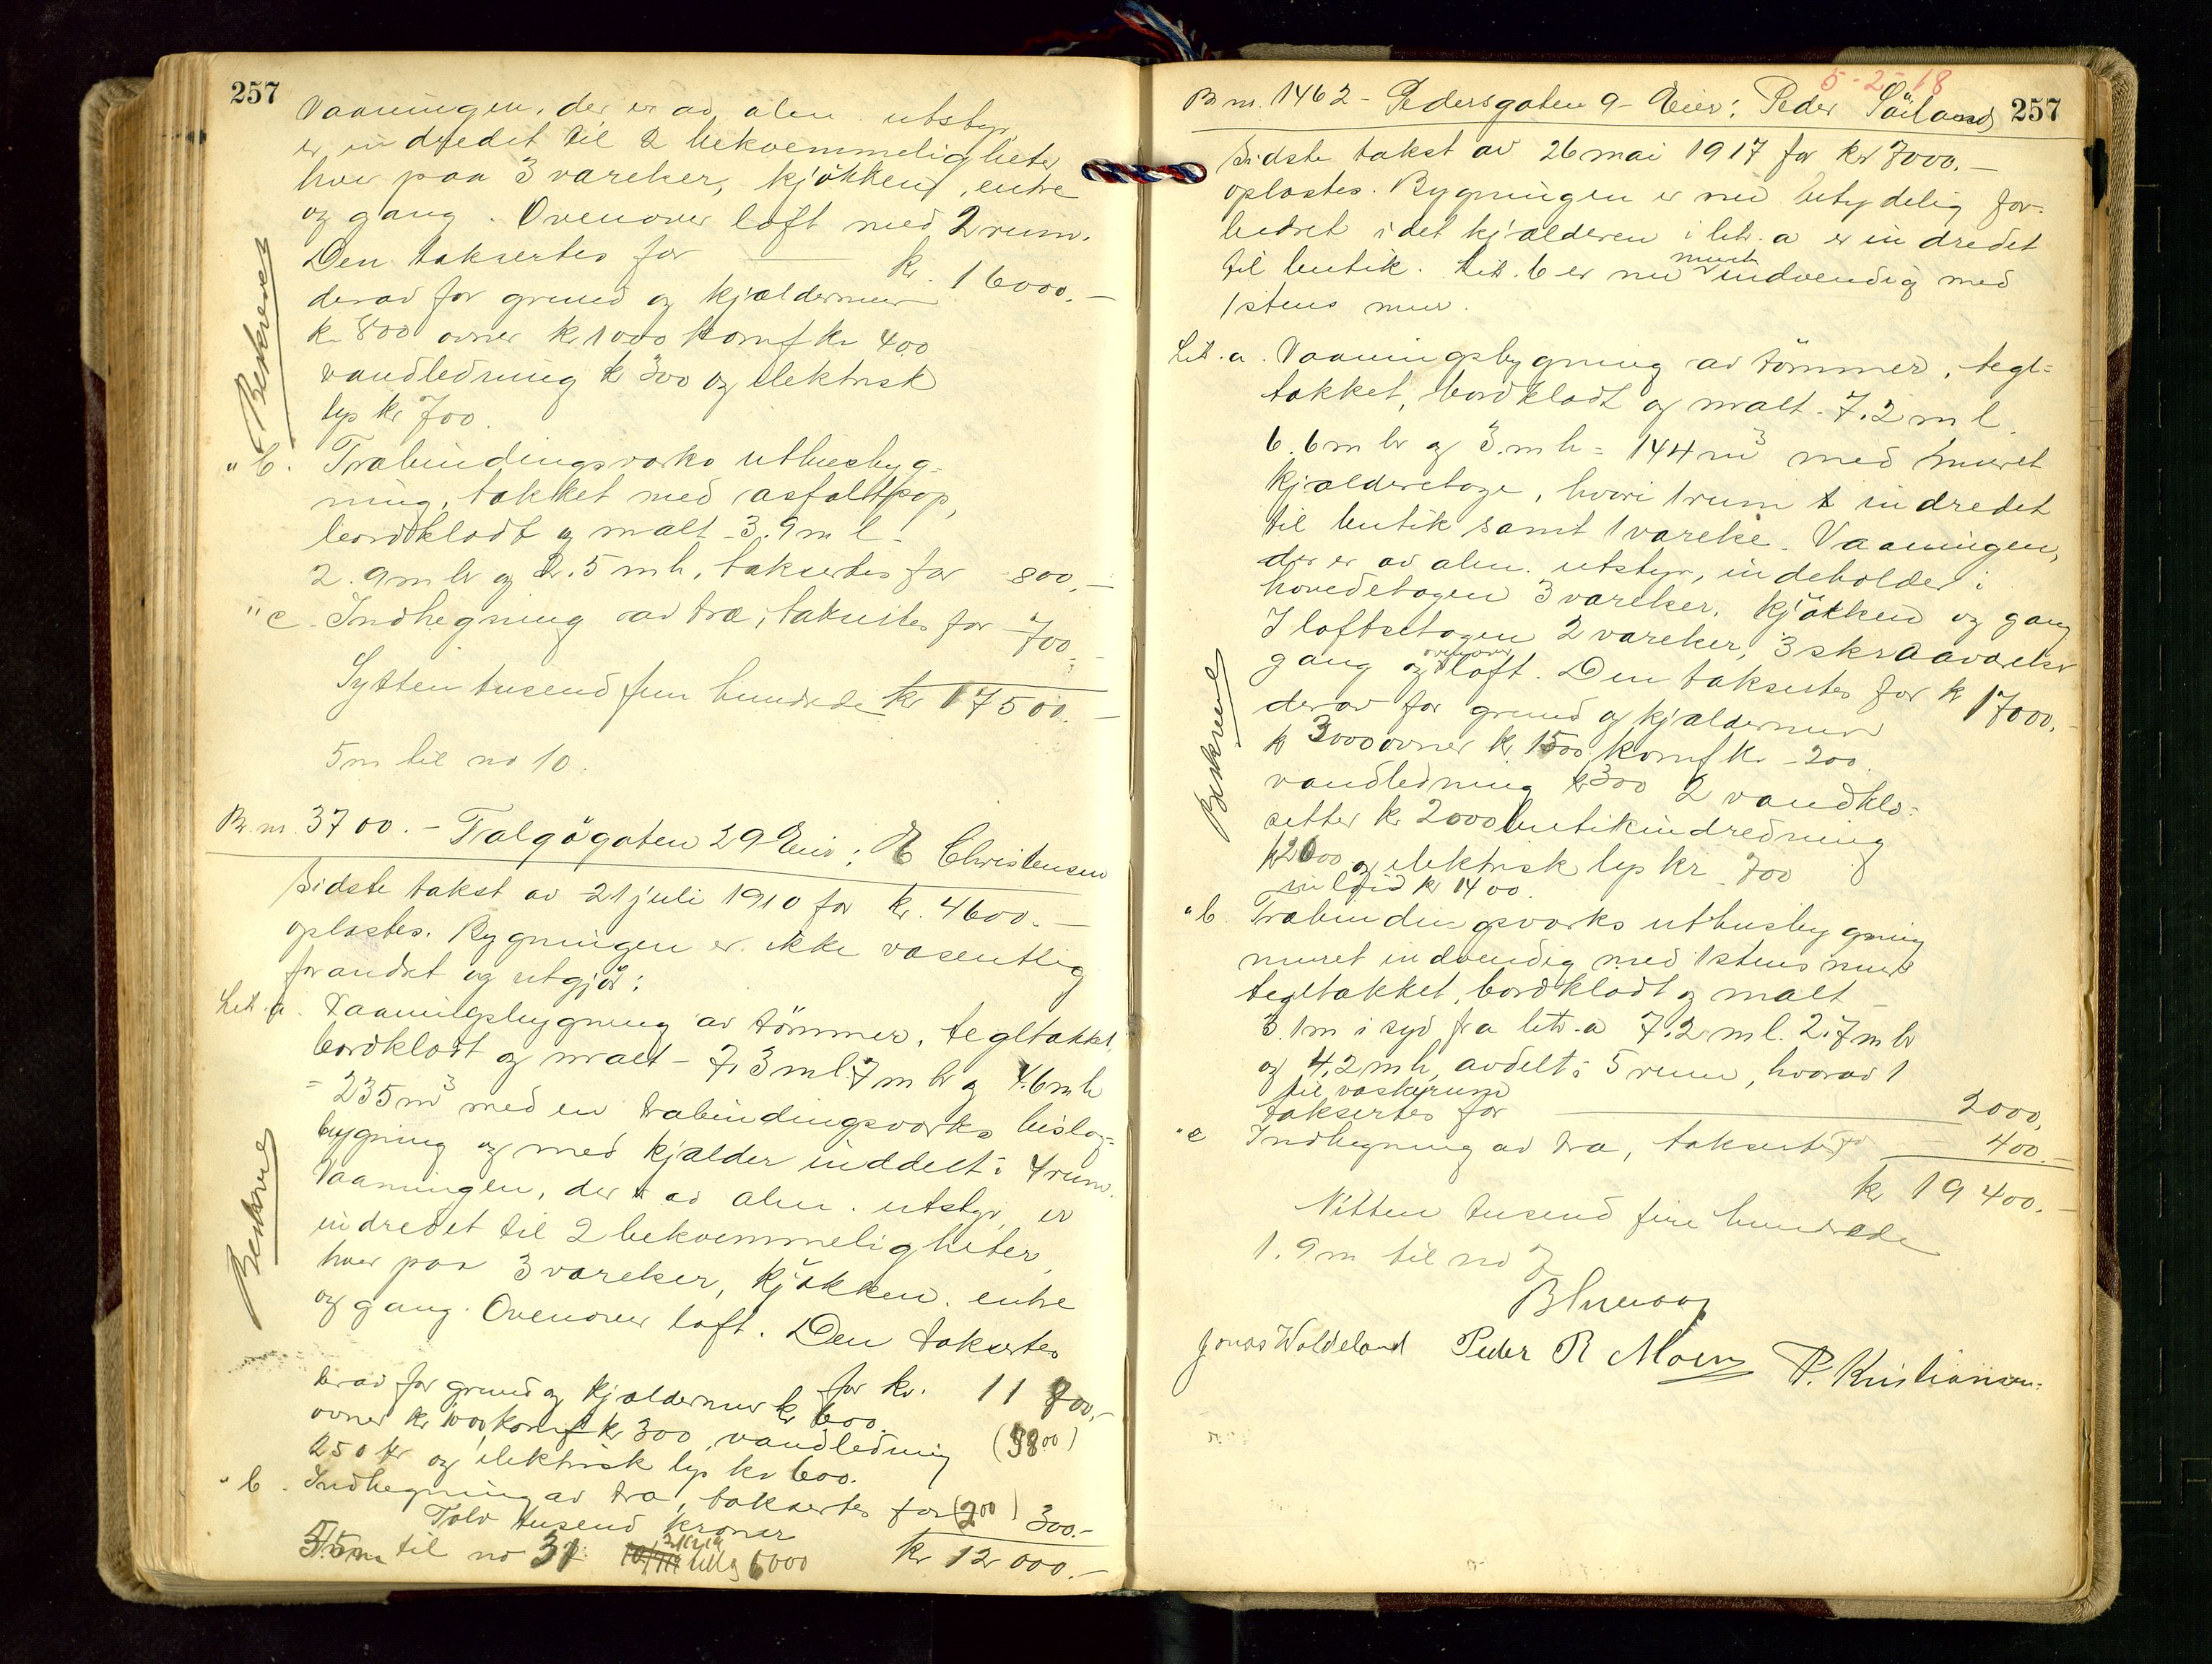 257
Vaaningen, der er av alm. utstyr,
er indredet til 2 bekvemmeligheter,
hver paa 3 værelser, kjökken, entre
og gang. Ovenover loft med 2 rum.
Den taksertes for kr. 16000.-
derav for grund og kjældermur
kr 800 ovner kr 1000 komf kr 400
vandledning kr 300 og elektrisk
lys kr 700.
Beskrevet
" b. Træbindingsværks uthusbyg-
ning, takket med asfaltpap,
bordklædt og malt - 3.9 m l.
2.9 m br og 2.5 m h, taksertes for 800,-
" c. Indhegning av træ, taksertes for 700.-
Sytten tusend fem hundrede kr 17500.-
5 m til no 10.
Br. nr. 3700. - Talgögaten 29 Eier: E Christensen
Sidste takst av 21 juli 1910 for kr. 4600.-
oplæstes. Bygningen er ikke væsentlig
forandret og utgjör:
Lit. a. Vaaningsbygning av tömmer, tegltækket,
bordklædt og malt - 7,3 m l. 7 m br og 4.6 m h
= 235 m3 med en træbindingsværks bislag-
bygning og med kjælder inddelt i 4 rum.
Vaaningen, der er av alm. utstyr, er
indredet til 2 bekvemmeligheter,
hver paa 3 værelser, kjökken, entre
og gang. Ovenover loft. Den taksertes
for kr. 11 700,-
Beskrevet
derav for grund og kjældermur kr 600.
ovner kr 1000, komf kr 300, vandledning (5800)
250 kr og elektrisk lys kr 600.
" b. Indhegning av træ, taksertes for (200) 300.-
Tolv tusend kroner
kr 12 000.-
5.5 m til no 31 tillæg 6000
5-2-18
Br nr. 1462 - Pedersgaten 9 - Eier: Peder Söiland 257
Sidste takst av 26 mai 1917 for kr 7000.-
oplæstes. Bygningen er nu betydelig for-
bedret idet kjælderen i litr. a er indredet
til butik. Lit. b er nu muret indvendig med
1 stens mur.
Lit. a. Vaaningsbygning av tömmer, tegl-
tækket, bordklædt og malt - 7.2 m l.
6.6 m br og 3. m h = 144 m3 med muret
kjælderetage, hvori 1 rum er indredet
til butik samt 1 værelse. Vaaningen,
der er av alm. utstyr, indeholder i
hovedetagen 3 værelser, kjökken og gang
I loftsetagen 2 værelser, 3 skraaværelser
gang og ovenover loft. Den taksertes for kr 17000.-
derav for grund og kjældermur
kr 3000 ovner kr 1500 komf kr 200.
vandledning kr 300 2 vandklo-
setter kr 2000 butikindredning
kr 2000 og elektrisk lys kr 700
kr 1400.
Beskrevet
" b. Træbindingsværks uthusbygning
muret indvendig med 1 stens mur
tegltækket, bordklædt og malt -
3.1 m i syd fra litr. a 7.2 m l. 2.7 m br
og 4.2 m h, avdelt i 5 rum, hvorav 1
til vaskerum
taksertes for 2000,
" c Indhegning av træ, taksertes for 400.-
kr 19 400.-
Nitten tusend fire hundrede
1.9 m til no 7
Jonas Woldeland Peder R Moen P. Kristiansen.